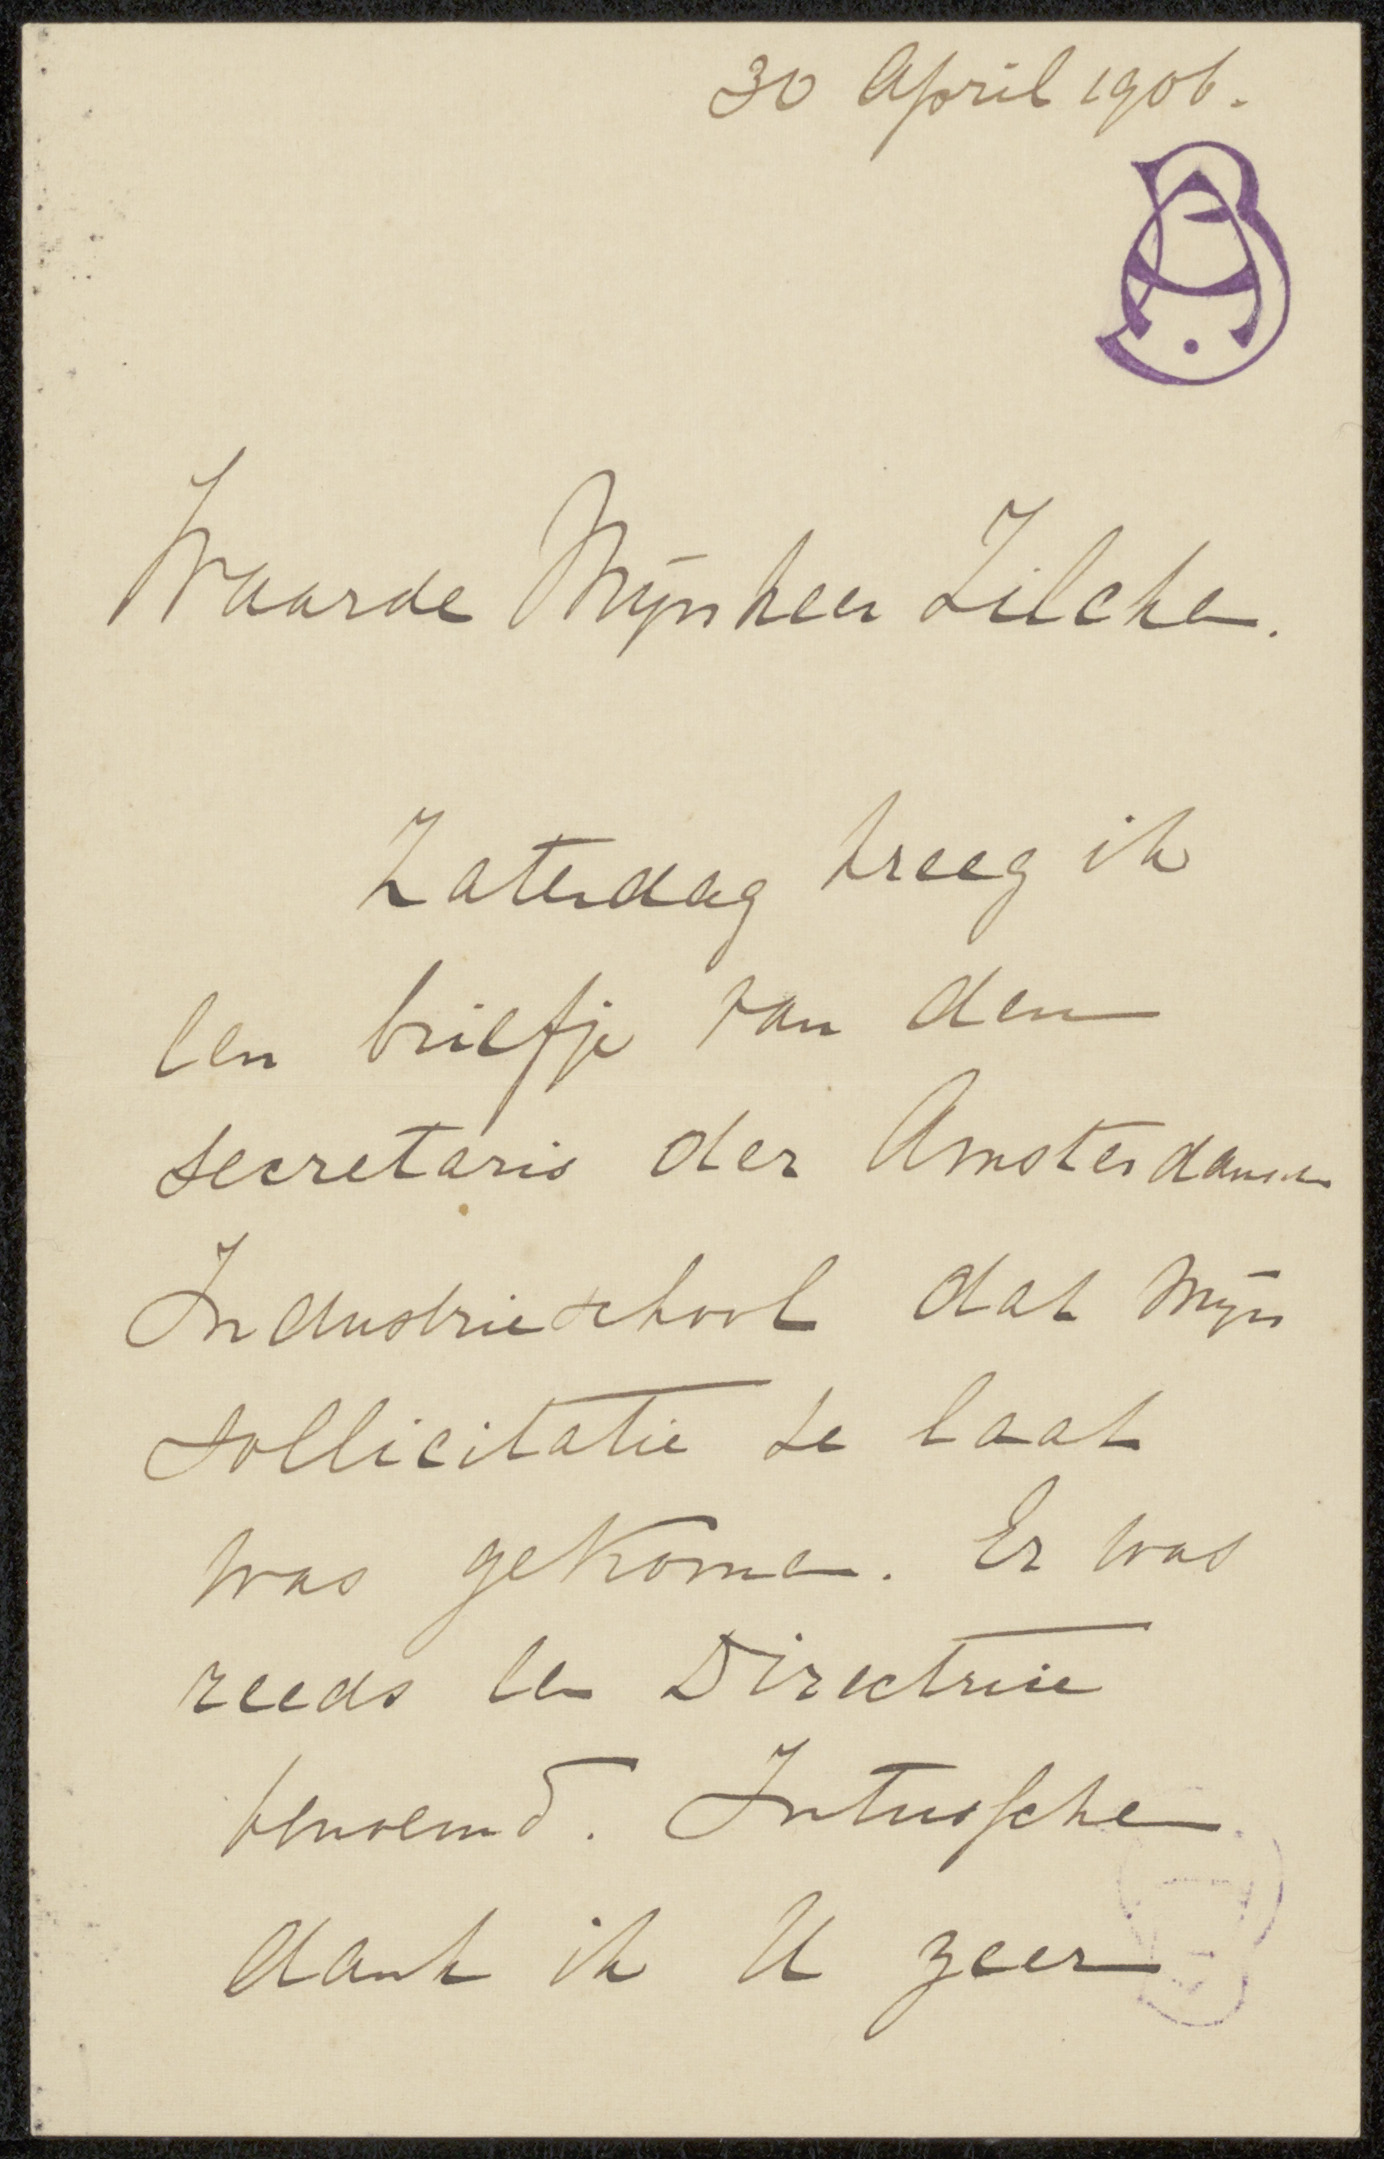 30 April 1906.
Waarde Mijnheer Zilcken.
Zaterdag kreeg ik
een briefje van den
secretaris der Amsterdamsche
Industrieschool dat mijn
sollicitatie te laat
was gekomen. Er was
reeds een Directrice
benoemd. Intusschen
dank ik U zeer